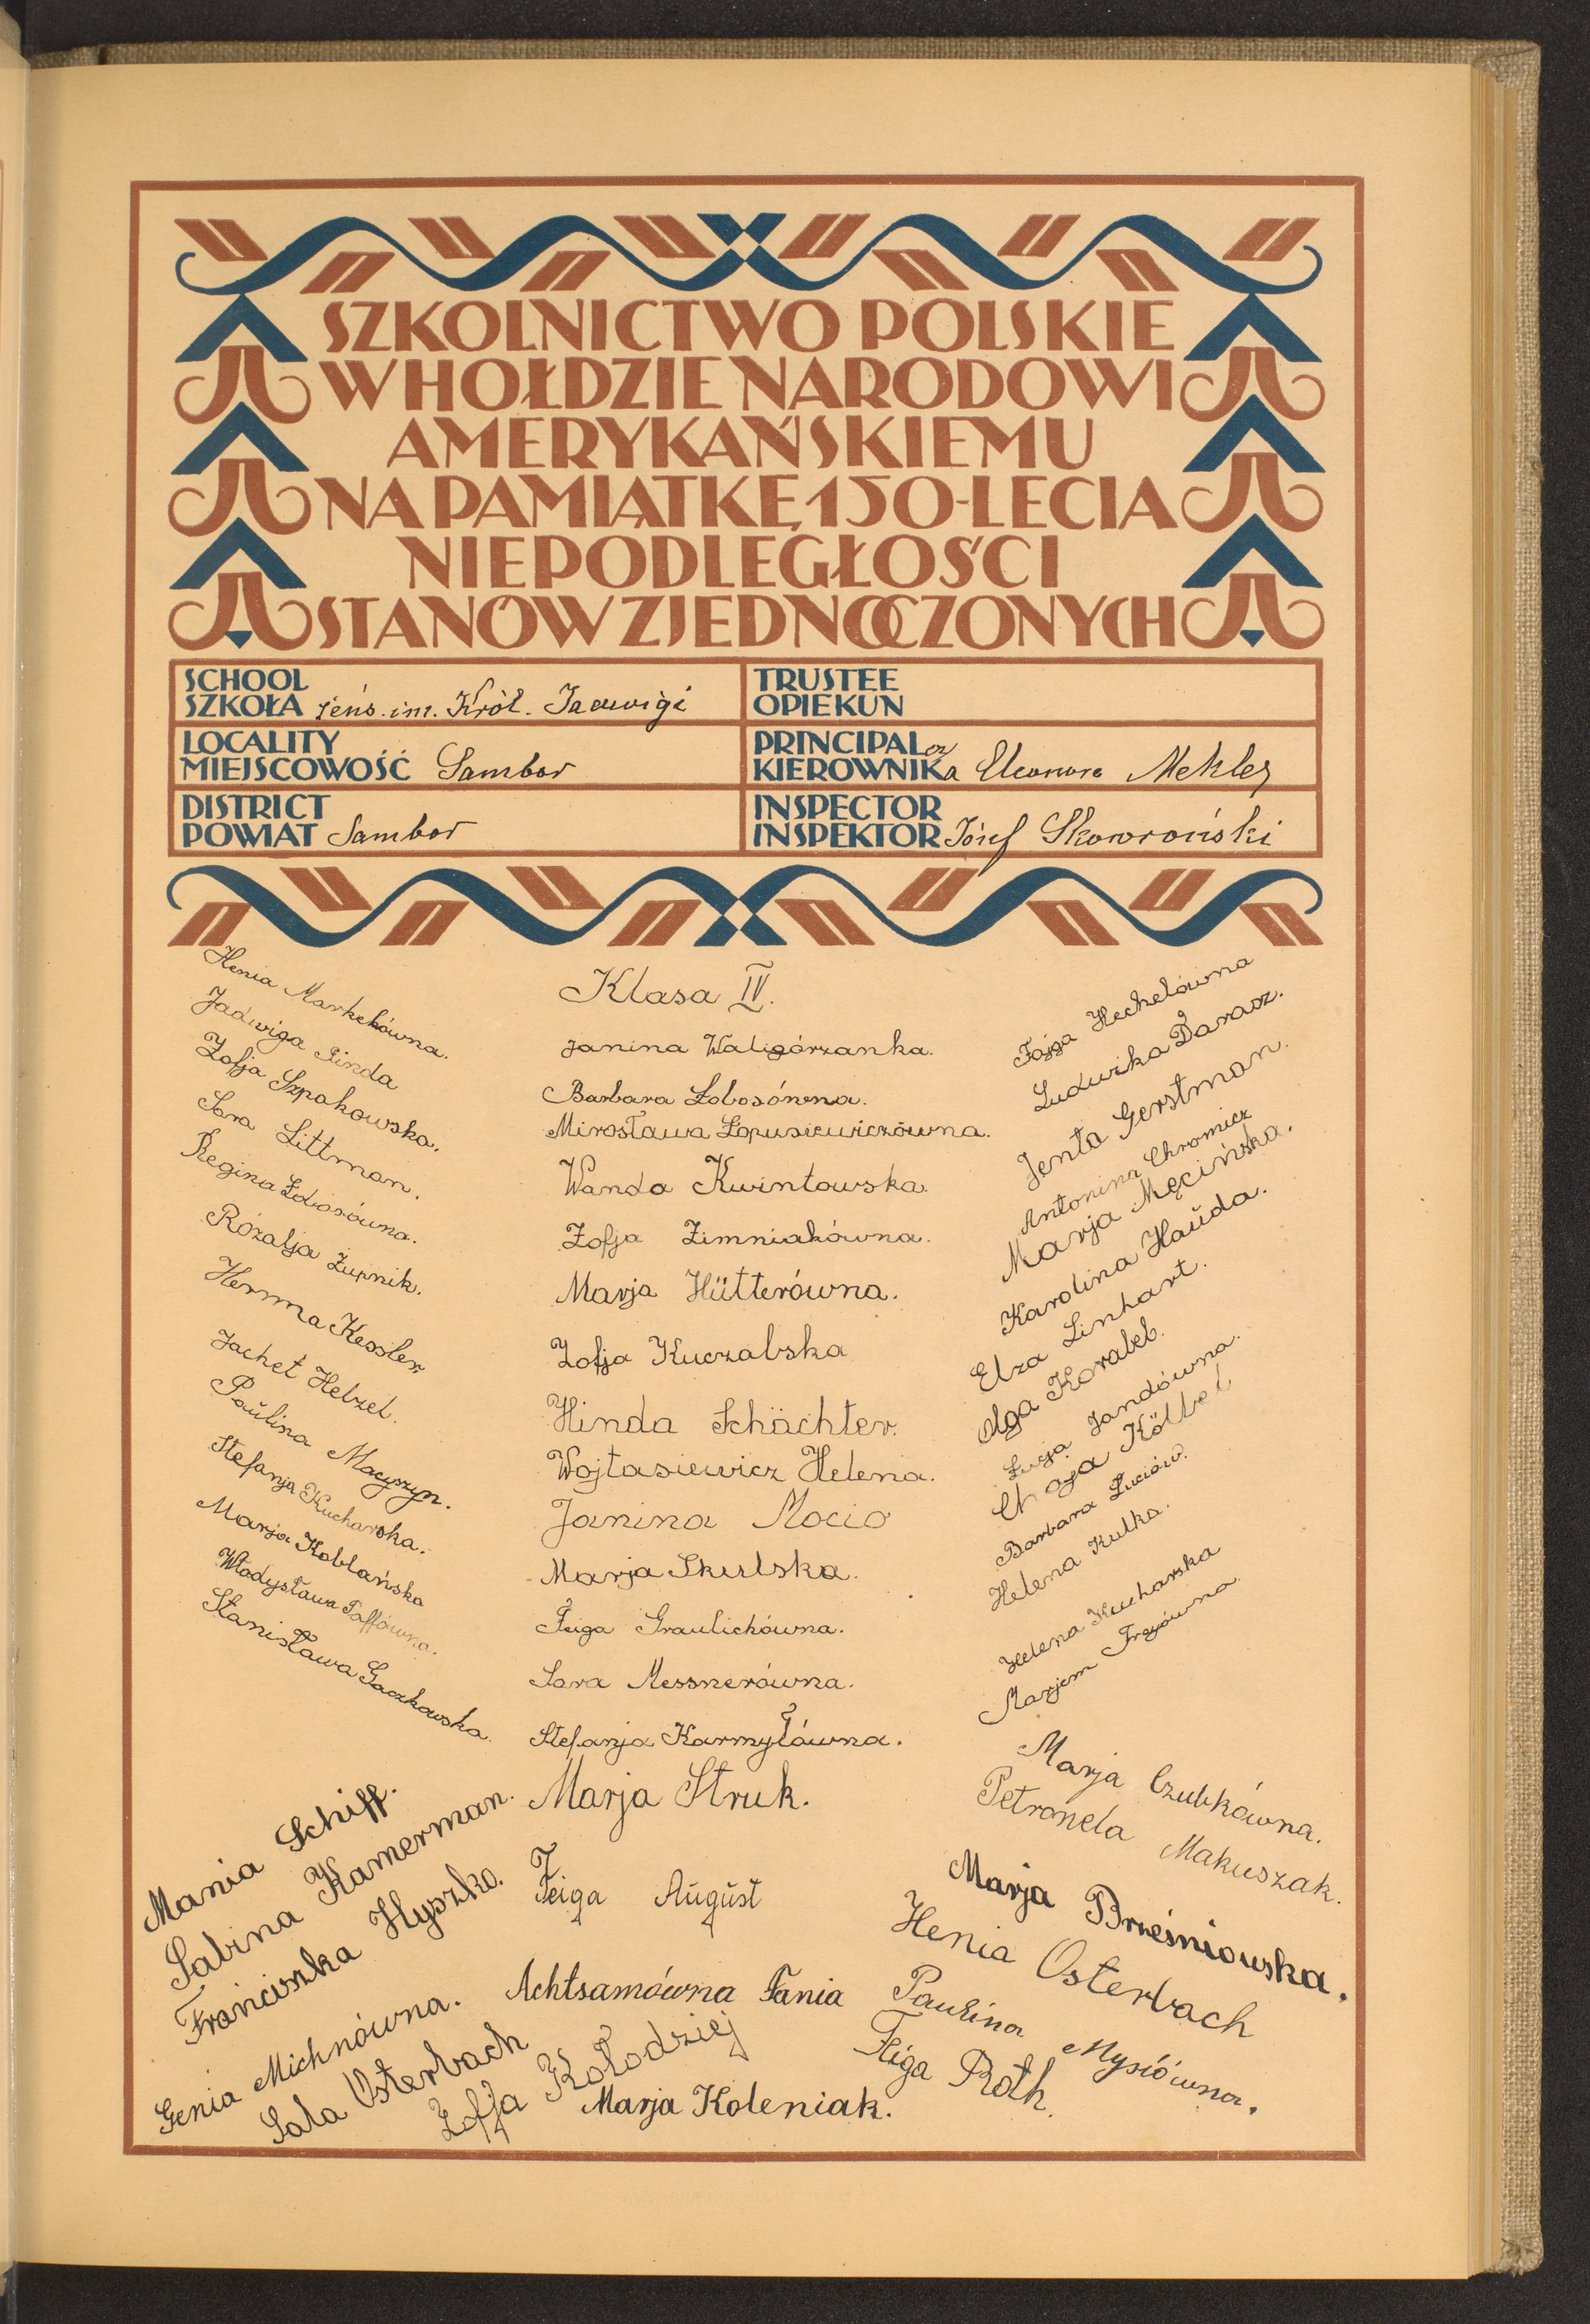 SZKOLNICTWO POLSKIE
W HOŁDZIE NARODOWI
AMERYKAŃSKIEMU
NA PAMIĄTKĘ 150-LECIA
NIEPODLEGŁOŚCI
STANÓW ZJEDNOCZONYCH
SCHOOL
SZKOŁA żeńs. im. Król. Jadwigi
TRUSTEE
OPIEKUN
LOCALITY
MIEJSCOWOŚĆ Sambor
PRINCIPAL
KIEROWNIKa Eleonora Mekler
DISTRICT
POWIAT Sambor
INSPECTOR
INSPEKTOR Józef Skowroński
Henia Markelówna.
Jadwiga Pinda
Zofja Szpakowska.
Sara Littman.
Regina Łobosówna.
Rózalja Żupnik.
Herma Kessler
Jachet Helzel.
Paulina Macyszyn.
Stefanja Kucharska.
Marja Koblańska
Władysława Taffówna.
Stanisława Gaczkowska.
Mania Schiff.
Sabina Kamerman.
Franciszka Hyszko.
Genia Michnówna.
Sala Osterbach
Zofja Kołodziej
Klasa IV.
Janina Waligórzanka.
Barbara Łobosówna.
Mirosława Łopusiewiczówna.
Wanda Kwintowska.
Zofja Zimniakówna.
Marja Hütterówna.
Zofja Kuczabska
Hinda Schächter.
Wojtasiewicz Helena.
Janina Mocio
Marja Skulska.
Feiga Graulichówna.
Sara Messnerówna.
Stefanja Karmyłówna.
Marja Struk.
Feiga August
Achtsamówna Fania
Marja Koleniak.
Fajga Hechelówna
Ludwika Daracz.
Jenta Gerstman.
Antonina Chromicz
Marja Męcińska.
Karolina Hauda.
Elza Linhart.
Olga Korabel.
Łucja Jandówna.
Chaja Kölbel
Barbara Łuciów.
Helena Kulka.
Helena Kucharska
Marjem Freyówna.
Marja Czubkówna.
Petronela Makuszak.
Marja Brześniowska.
Henia Osterbach
Paulina Mysiówna.
Feiga Roth.